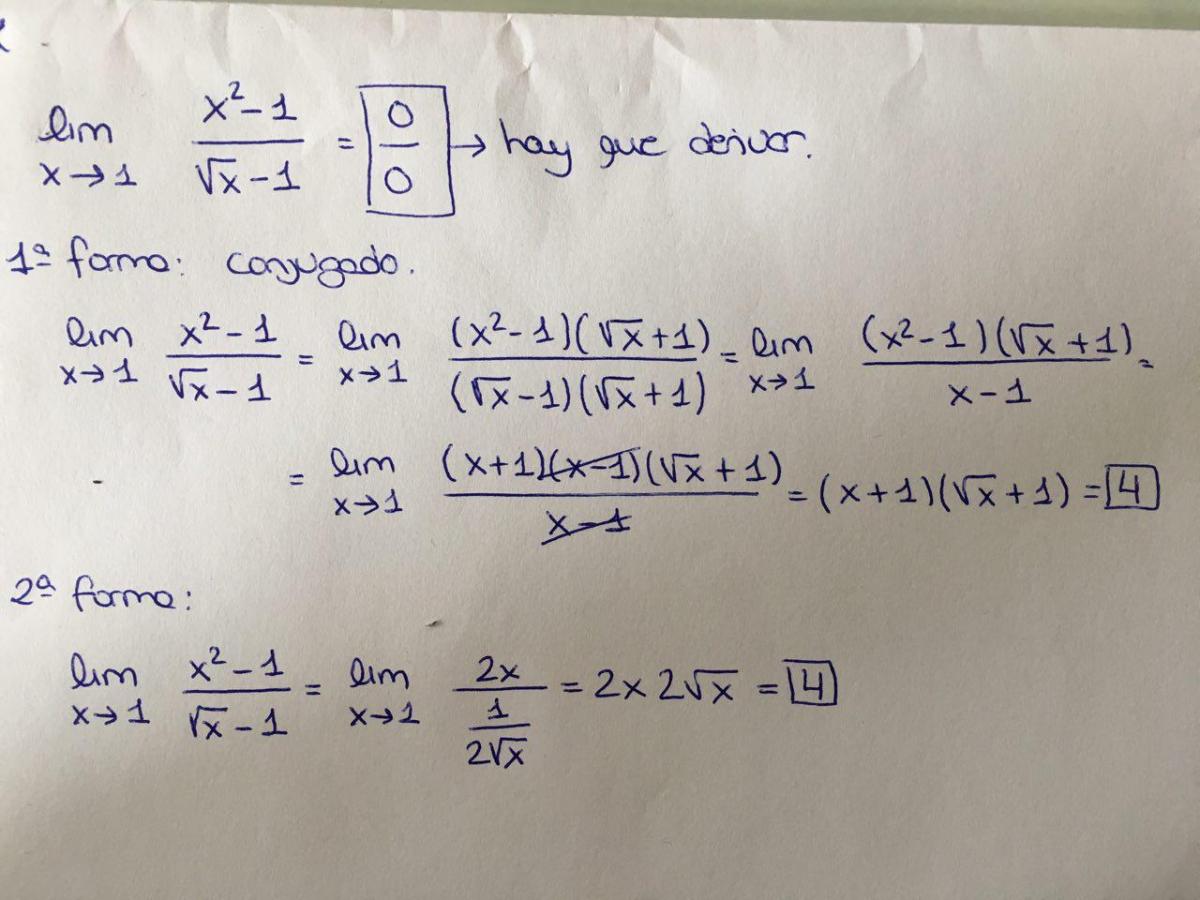 lim x→1 x²-1/√x-1 = 0/0 → hay que derivar.
1ª forma: conjugado.
lim x→1 x²-1/√x-1 = lim x→1 (x²-1)(√x+1)/(√x-1)(√x+1) = lim x→1 (x²-1)(√x+1)/x-1 =
= lim x→1 (x+1)(x-1)(√x+1)/x-1 = (x+1)(√x+1) = 4
2ª forma:
lim x→1 x²-1/√x-1 = lim x→1 2x/1/2√x = 2x 2√x = 4